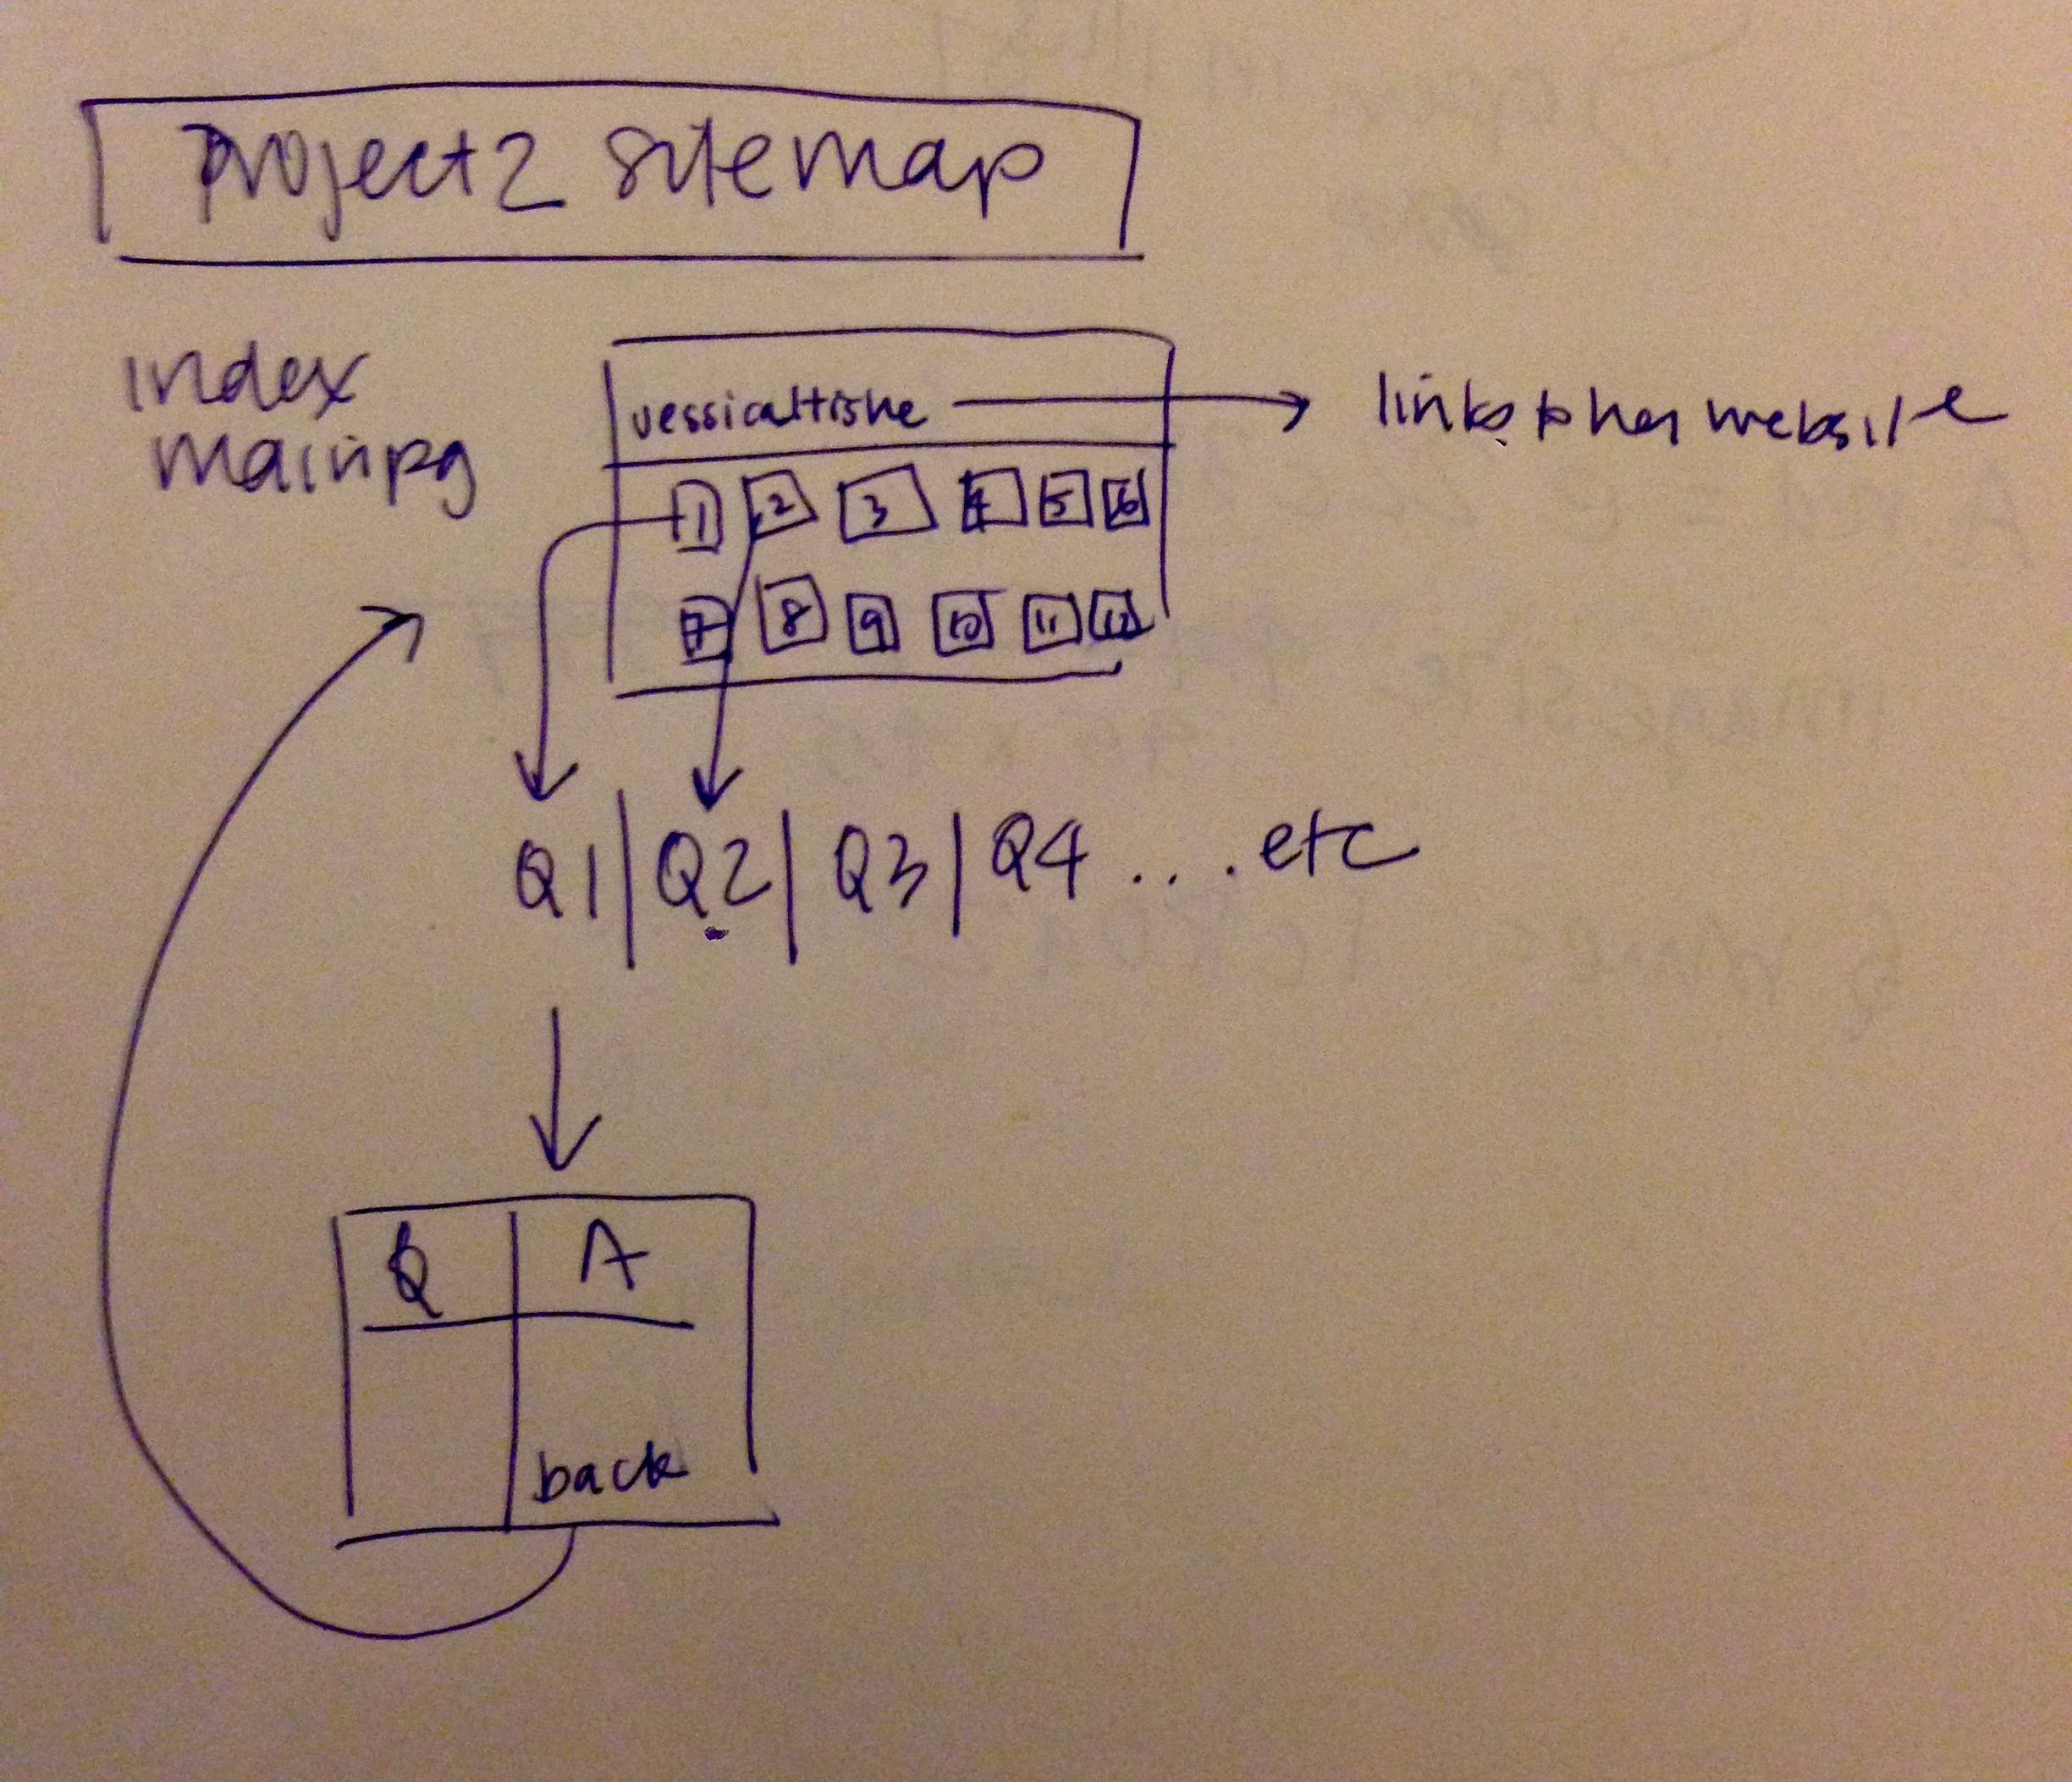 project 2 sitemap
index
mainpg
jessicahische
links to her website
1 2 3 4 5 6
7 8 9 10 11 12
Q1 | Q2 | Q3 | Q4 .... etc
Q A
back